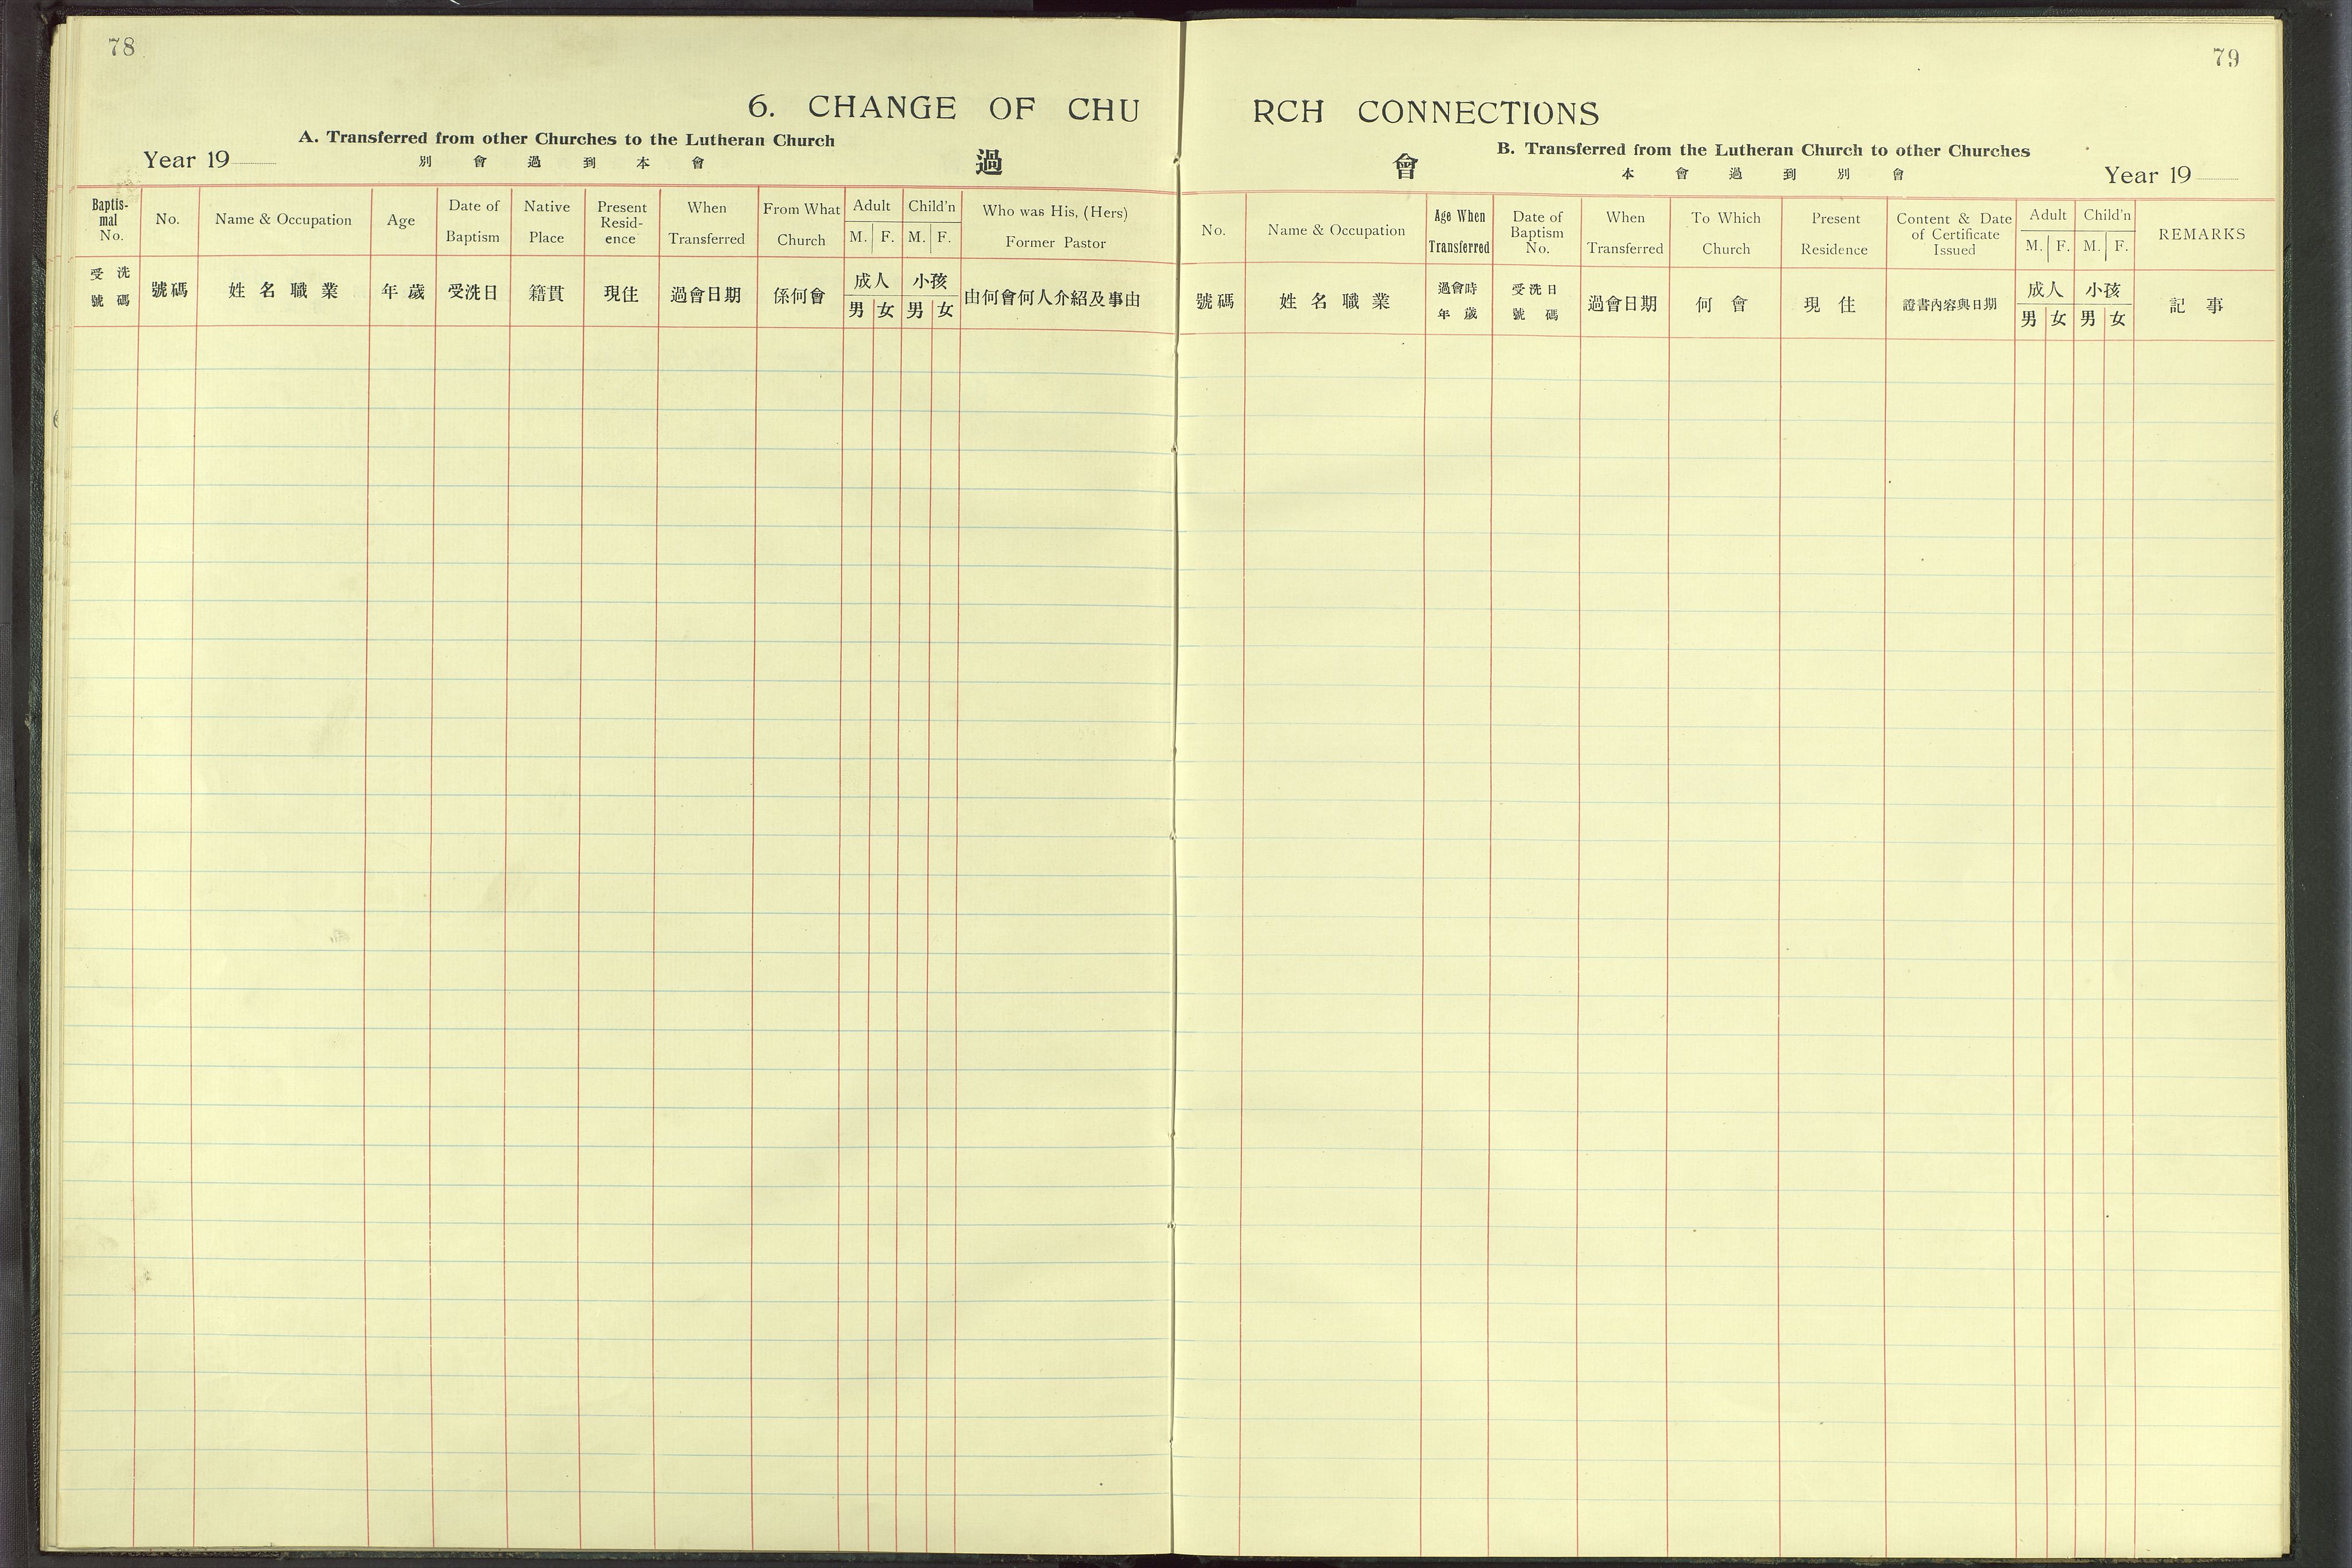 78
6. CHANGE OF CHU
A. Transferred from other Churches to the Lutheran Church
Year 19
別 會 過 到 本 會
過
Baptismal No. No. Name & Occupation Age Date of Baptism Native Place Present Residence When Transferred From What Church Adult M. F. Child'n M. F. Who was His, (Hers) Former Pastor
受洗號碼 號碼 姓名職業 年歲 受洗日 籍貫 現住 過會日期 係何會 成人 男 女 小孩 男 女 由何會何人介紹及事由
79
RCH CONNECTIONS
B. Transferred from the Lutheran Church to other Churches
會
本 會 過 到 別 會
Year 19
No. Name & Occupation Age When Transferred Date of Baptism No. When Transferred To Which Church Present Residence Content & Date of Certificate Issued Adult M. F. Child'n M. F. REMARKS
號碼 姓名職業 過會時年歲 受洗日號碼 過會日期 何會 現住 證書內容與日期 成人 男 女 小孩 男 女 記事